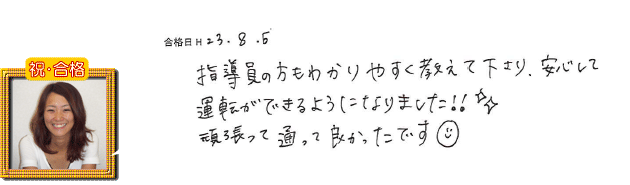 合格日 H 23.8.5
祝・合格
指導員の方もわかりやすく教えて下さり、安心して
運転ができるようになりました!!
頑張って通って良かったです